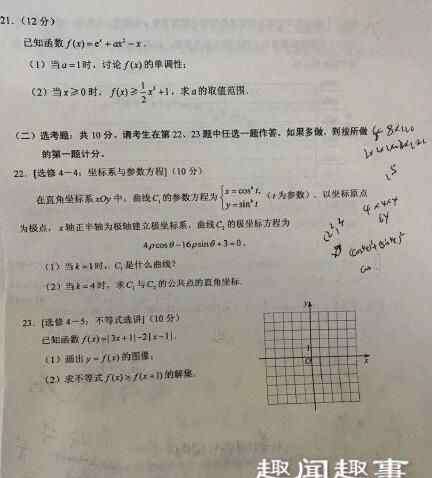 21.（12分）
已知函数 f(x)=eˣ+ax²−x.
（1）当a=1时，讨论f(x)的单调性；
（2）当x⩾0时，f(x)⩾1/2x³+1，求a的取值范围.
（二）选考题：共10分，请考生在第22、23题中任选一题作答。如果多做，则按所做
的第一题计分。
22. [选修4-4：坐标系与参数方程]（10分）
在直角坐标系xOy中，曲线C₁的参数方程为{x=cosᵏt, y=sinᵏt（t为参数）. 以坐标原点
为极点，x轴正半轴为极轴建立极坐标系，曲线C₂的极坐标方程为
4ρcosθ−16ρsinθ+3=0.
（1）当k=1时，C₁是什么曲线?
（2）当k=4时，求C₁与C₂的公共点的直角坐标.
23. [选修4-5：不等式选讲]（10分）
已知函数f(x)=|3x+1|−2|x−1|.
（1）画出y=f(x)的图像；
（2）求不等式f(x)>f(x+1)的解集.
y
1
O
x
趣闻趣事